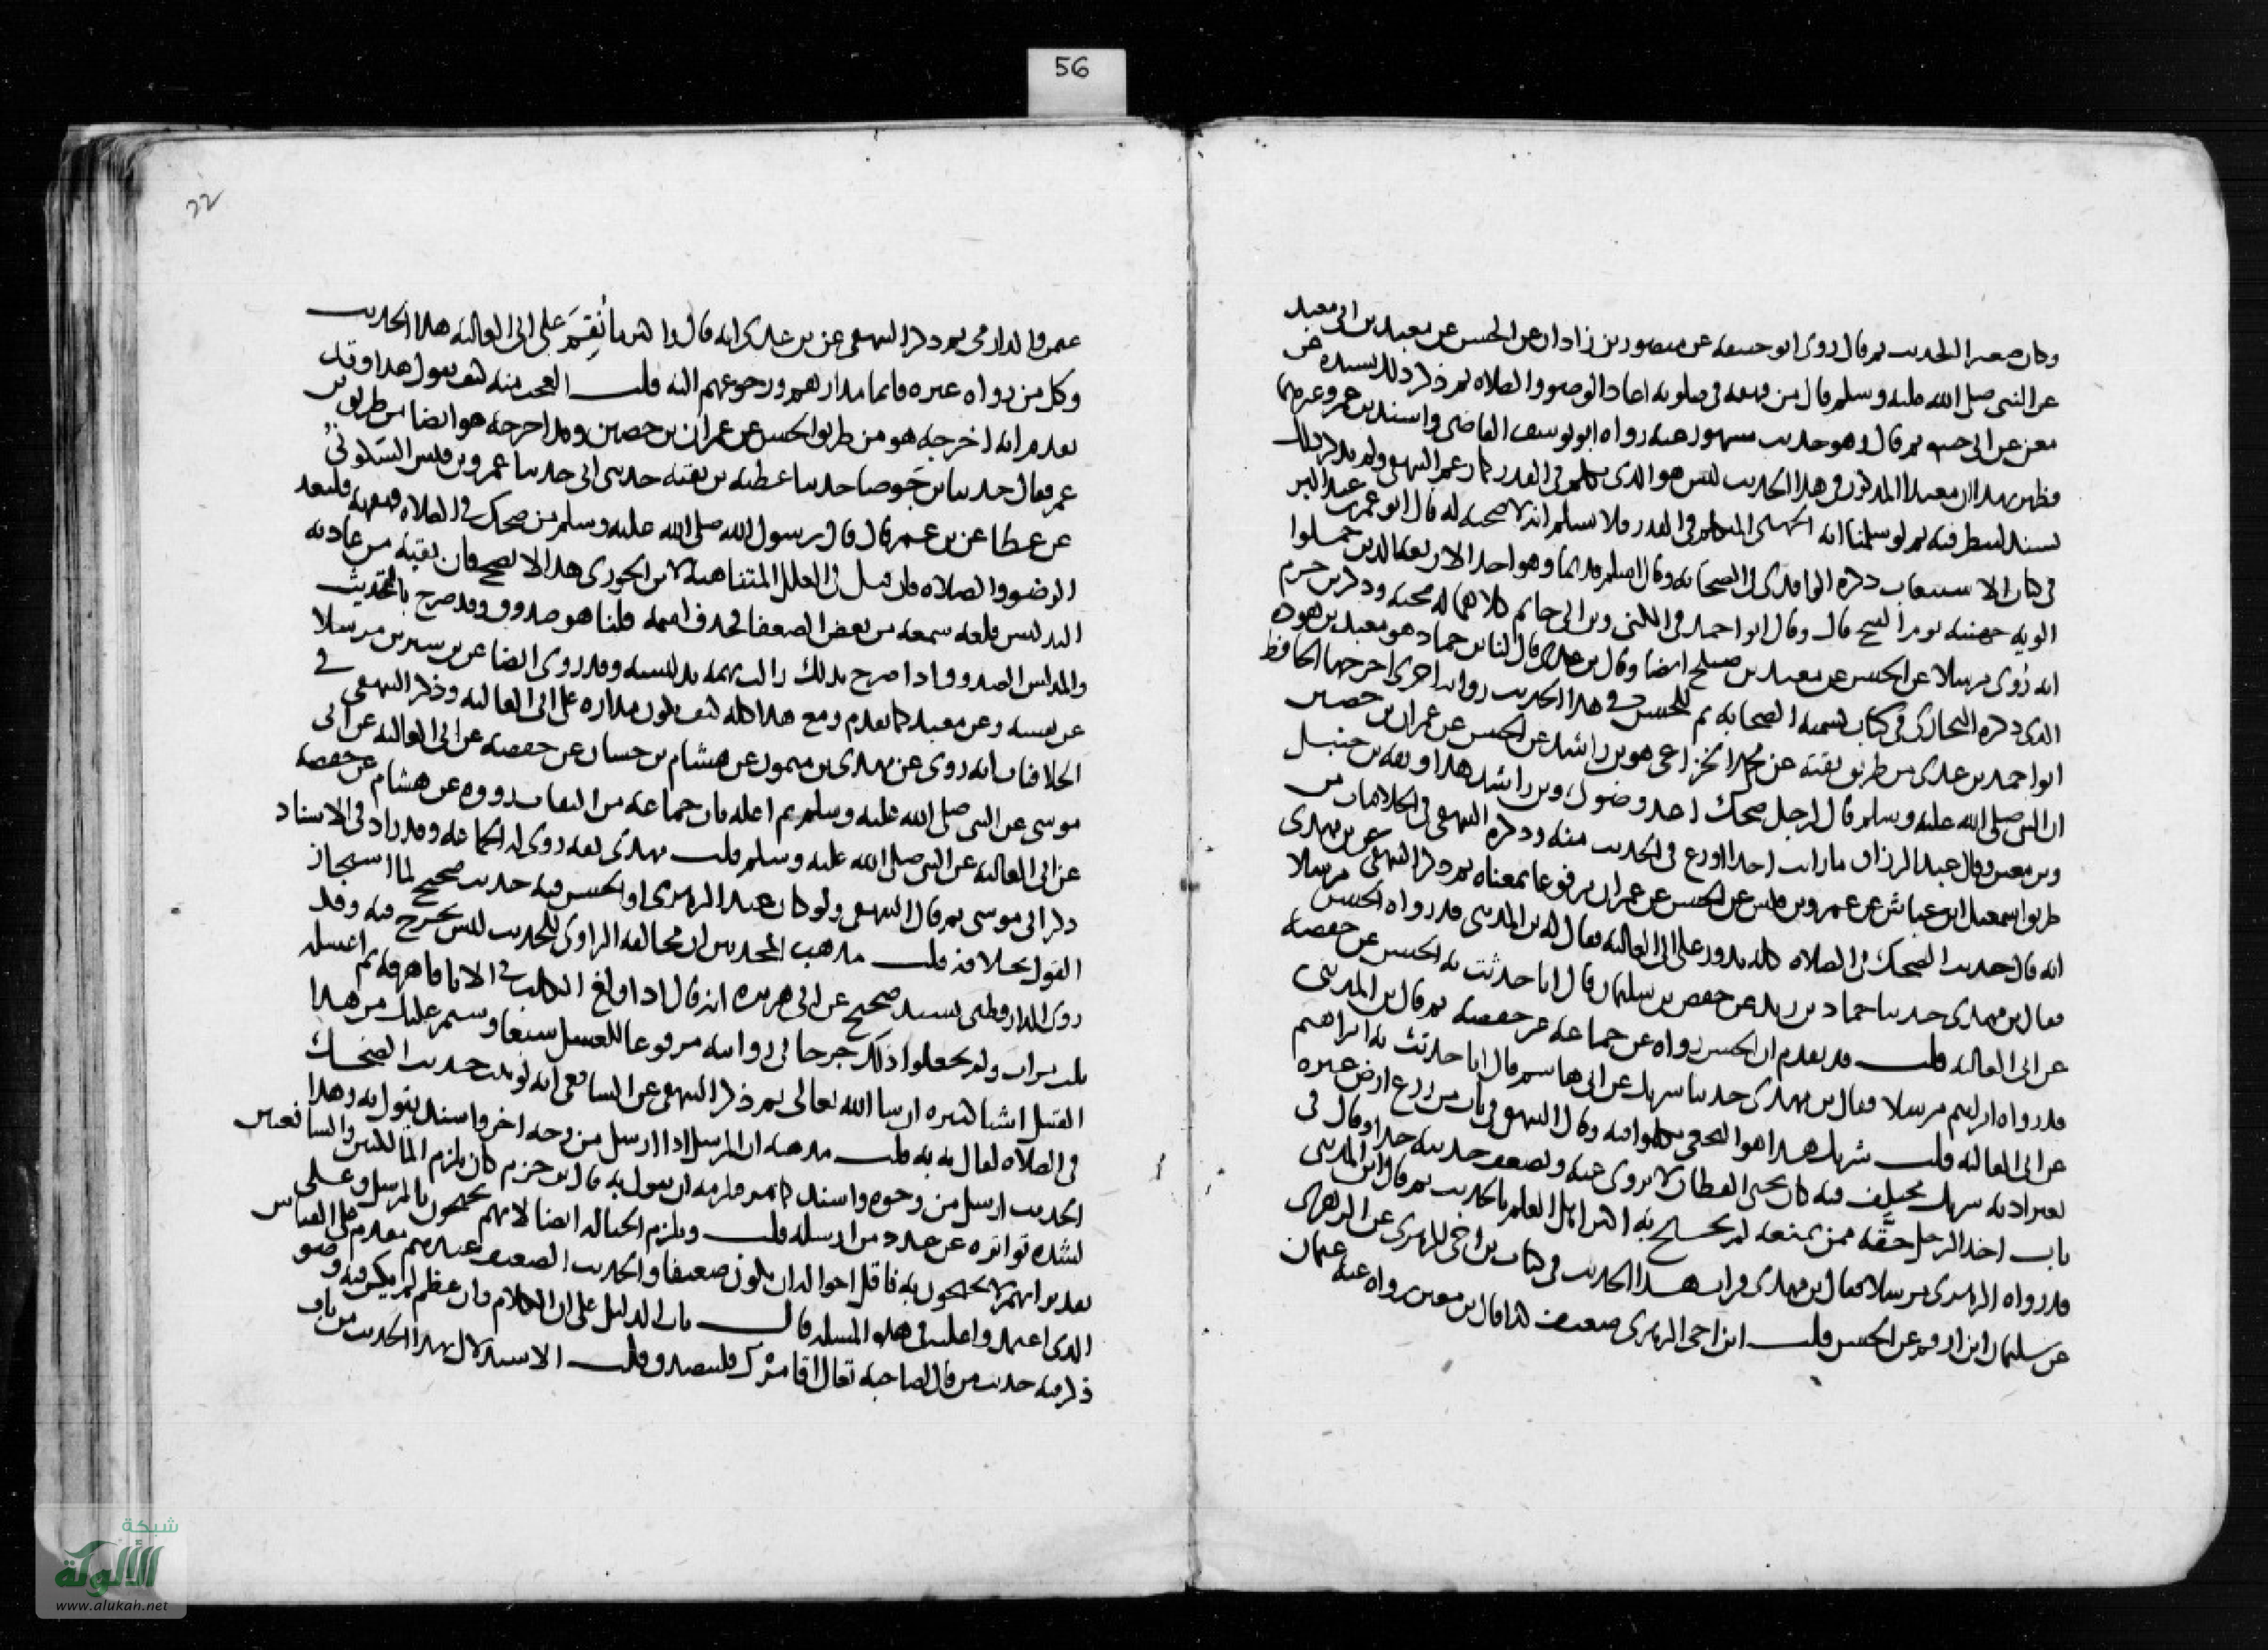 56
وكان صغير الحديث ثم قال روى ابو حنيفه عن منصور بن زاذان عن الحسن عن معبد بن ابى معبد
عن النبى صلى الله عليه وسلم قال من قهقه فى صلوته اعاد الوضوء والصلاه ثم ذكر ذلك بسنده عن
معن عن ابى حنيفه ثم قال وهو حديث مشهور عنه رواه ابو يوسف القاضى واسد بن عمرو وغيرهما
فظهر بهذا ان معبدا المذكور فى هذا الحديث ليس هو الذى تكلم فى القدر كما زعم البيهقى ولم يذكر ذلك
بسند لينظر فيه ثم لو سلمنا انه الجهنى المتكلم فى القدر فلا نسلم انه لا صحبه له قال ابو عمر بن عبد البر
فى كتاب الاستيعاب ذكره الواقدى فى الصحابه وقال اسلم قديما وهو احد الاربعه الذين حملوا
الويه جهينه يوم الفتح قال وقال ابو احمد فى الكنى وبن ابى حاتم كلاهما له صحبه وذكر بن حزم
انه روى مرسلا عن الحسن عن معبد بن صبيح ايضا وقال بن عدى قال لنا بن حماد هو معبد بن هوذه
الذى ذكره البخارى فى كتاب تسميه الصحابه ثم للحسن فى هذا الحديث روايه اخرى اخرجها الحافظ
ابو احمد بن عدى من طريق بقيه عن محمد الخزاعى هو بن راشد عن الحسن عن عمران بن حصين
ان النبى صلى الله عليه وسلم قال لرجل ضحك اعد وضوءك وبن راشد هذا وثقه بن حنبل
وبن معين وقال عبد الرزاق ما رايت احدا اورع فى الحديث منه وذكره البيهقى فى الخلافيات من
طريق اسمعيل بن عياش عن عمرو بن قيس عن الحسن عن عمران مرفوعا بمعناه ثم ذكر البيهقى عن بن مهدى
انه قال حديث الضحك فى الصلاه كله يدور على ابى العاليه فقال له بن المدينى قد رواه الحسن مرسلا
فقال بن مهدى حدثنا حماد بن زيد عن حفص بن سليمان قال انا حدثت به الحسن عن حفصه
عن ابى العاليه قلت قد تقدم ان الحسن رواه عن جماعه غير حفصه ثم قال بن المدينى
قد رواه ابرهيم مرسلا فقال بن مهدى حدثنا شريك عن ابى هاشم قال انا حدثت به ابراهيم
عن ابى العاليه قلت شريك هذا هو النخعى تكلموا فيه وقال البيهقى فى باب من زرع ارض غيره
بغير اذنه شريك مختلف فيه كان يحيى القطان لا يروى عنه ويضعف حديثه جدا وقال فى
باب اخذ الرجل حقه ممن يمنعه لم يحتج به اكثر اهل العلم بالحديث ثم قال بن المدينى
قد رواه الزهرى مرسلا فقال بن مهدى قرات هذا الحديث فى كتاب بن اخى الزهرى عن الزهرى
عن سليمان بن ارقم عن الحسن قلت ابن اخى الزهرى ضعيف كذا قال بن معين رواه عنه عثمان
٢٢
عمر قال الدارمى ثم ذكر البيهقى عن بن عدى انه قال واكثر ما نُقِمَ على ابى العاليه هذا الحديث
وكل من رواه غيره فانما مدارهم ورجوعهم اليه قلت العجب منه كيف يقول هذا وقد
تقدم انه اخرجه هو من طريق الحسن عن عمران بن حصين وقد اخرجه هو ايضا من طريق بن
عمر فقال حدثنا بن جَوصا حدثنا عطيه بن بقيه حدثنى ابى حدثنا عمرو بن قيس السَّكونى
عن عطا عن بن عمر قال قال رسول الله صلى الله عليه وسلم من ضحك فى الصلاه قهقهه فليعد
الوضوء والصلاه فان قيل فى العلل المتناهيه لابن الجوزى هذا لا يصح فان بقيه من عادته
التدليس فلعله سمعه من بعض الضعفا فحذف اسمه قلنا هو صدوق وقد صرح بالتحديث
والمدلس الصدوق اذا صرح بذلك زالت تهمه تدليسه وقد روى ايضا عن بن سيرين مرسلا
عن نفسه وعن معبد كما تقدم ومع هذا كله كيف يكون مداره على ابى العاليه وذكر البيهقى فى
الخلافيات انه روى عن مهدى بن ميمون عن هشام بن حسان عن حفصه عن ابى العاليه عن ابى
موسى عن النبى صلى الله عليه وسلم ثم اعله بان جماعه من الثقات رووه عن هشام عن حفصه
عن ابى العاليه عن النبى صلى الله عليه وسلم قلت مهدى ثقه روى له الجماعه وقد زاد فى الاسناد
ذكر ابى موسى ثم قال البيهقى ولو كان عند الزهرى او الحسن فيه حديث صحيح لما استجاز
القول بخلافه قلت مذهب المحدثين ان مخالفه الراوى للحديث ليس بجرح فيه وقد
روى الدارقطنى بسند صحيح عن ابى هريره انه قال اذا ولغ الكلب فى الانا فاهرقه ثم اغسله
ثلث مرات ولم يجعلوا ذلك جرحا فى روايته مرفوعا للغسل سبعا وسيمر عليك من هذا
القبيل اشيا كثيره ان شا الله تعالى ثم ذكر البيهقى عن الشافعى انه لو ثبت حديث الضحك
فى الصلاه لقال به قلت مذهبه ان المرسل اذا ارسل من وجه اخر او اسند يقول به وهذا
الحديث ارسل من وجوه واسند كما مر فلزمه ان يقول به قال بن حزم كان يلزم المالكيين والشافعيين
لشده تواتره عن عدد من ارسله قلت ويلزم الحنابله ايضا لانهم يحتجون بالمرسل وعلى
تقدير انهم لا يحتجون به فاقل احواله ان يكون ضعيفا والحديث الضعيف عندهم مقدم على القياس
الذى اعتمدوا عليه فى هذه المسله قال باب الدليل على ان الكلام وان عظم لم يكن فيه وضو
ذكر فيه حديث من قال لصاحبه تعال اقامرك فليتصدق قلت الاستدلال بهذا الحديث من باب
شبكة
الألوكة
www.alukah.net